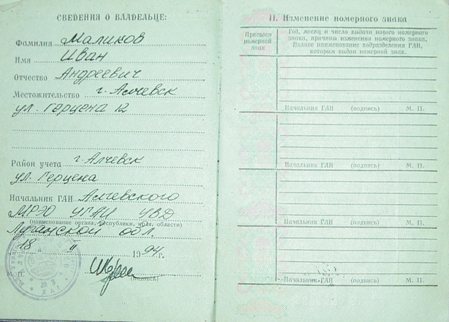 СВЕДЕНИЯ О ВЛАДЕЛЬЦЕ:
Фамилия Маликов
Имя Иван
Отчество Андреевич
Местожительство г. Алчевск
ул. Герцена 12
Район учета г. Алчевск
ул. Герцена
Начальник ГАИ Алчевского
МРЭО УГАИ УВД
(наименование органа, республики, края, области)
Луганской обл.
18 " " 1994 г.
II. Изменение номерного знака
Присвоен номерной знак
Год, месяц и число выдачи нового номерного знака, причины изменения номерного знака. Полное наименование подразделения ГАИ, которым выдан номерной знак.
Начальник ГАИ (подпись) М. П.
Начальник ГАИ (подпись) М. П.
Начальник ГАИ (подпись) М. П.
Начальник ГАИ (подпись) М. П.